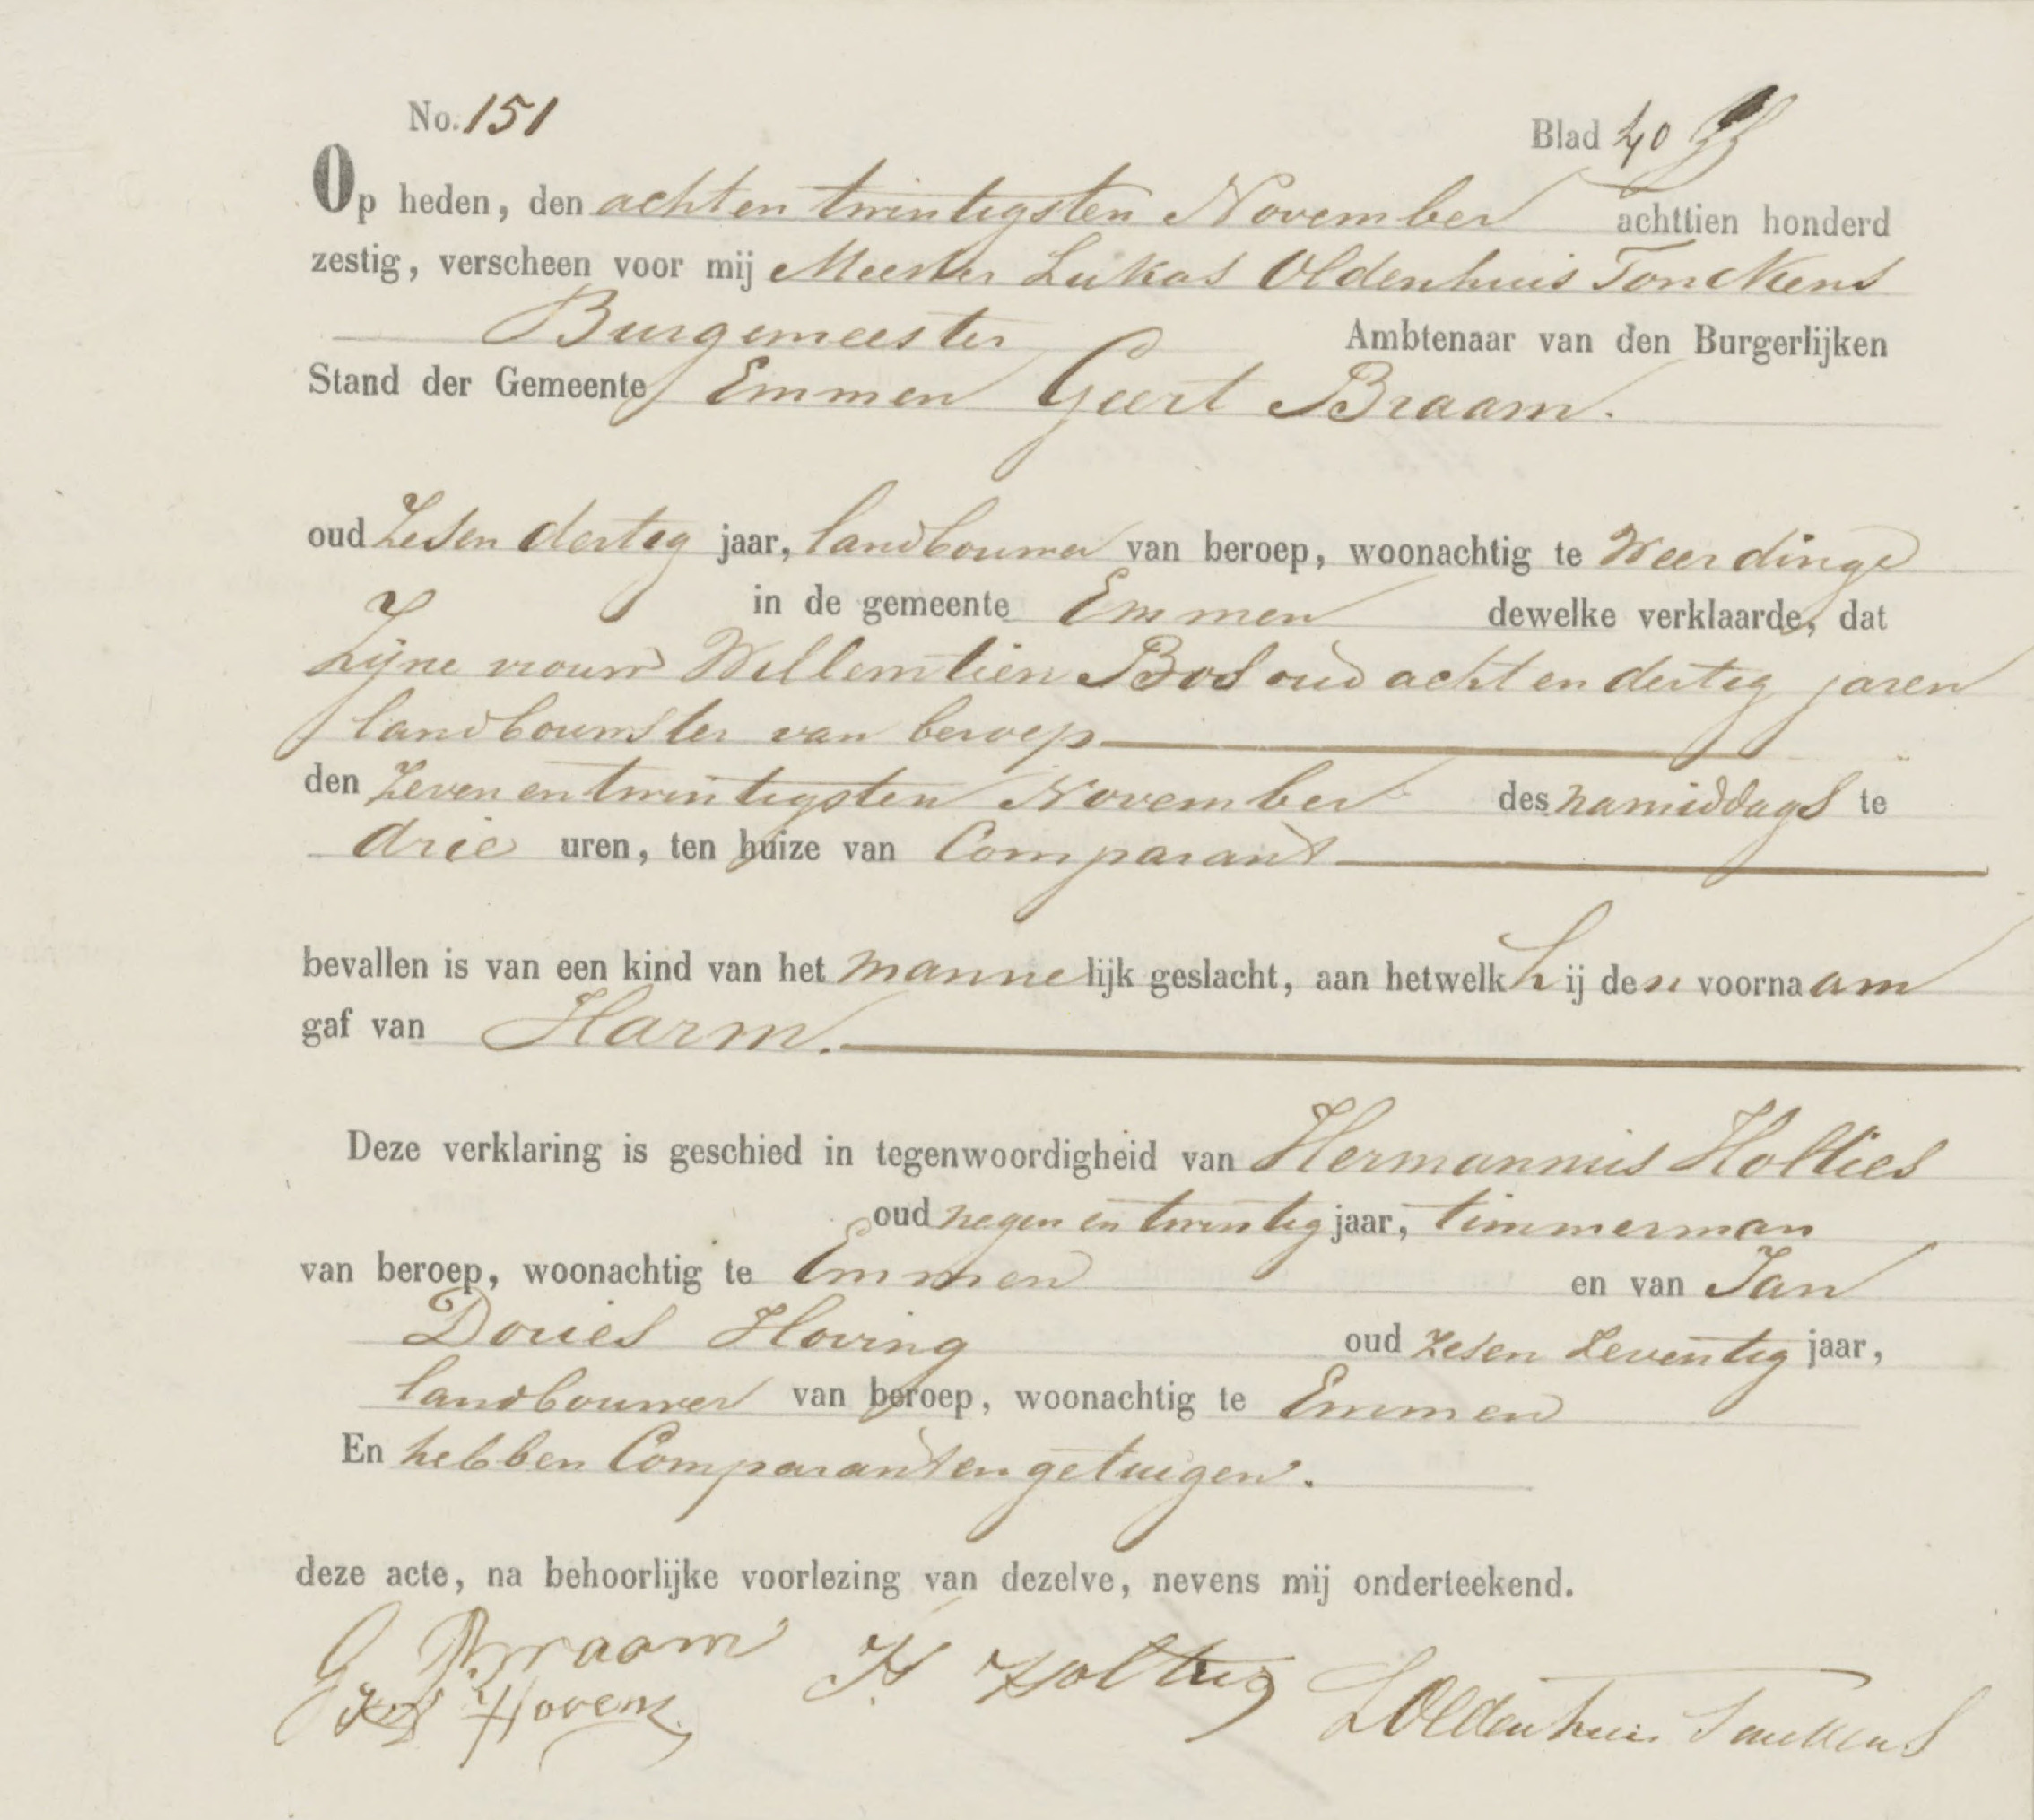 No. 151
Blad 40
Op heden, den achtentwintigsten November achttien honderd
zestig, verscheen voor mij Meester Lukas Oldenhuis Tonckens
Burgemeester Ambtenaar van den Burgerlijken
Stand der Gemeente Emmen Geert Braam.
oud Zesendertig jaar, landbouwer van beroep, woonachtig te Weerdinge
in de gemeente Emmen dewelke verklaarde, dat
Zijne vrouw Willemtien Bos oud achtendertig jaren
landbouwster van beroep
den Zevenentwintigsten November des namiddags te
drie uren, ten huize van Comparant
bevallen is van een kind van het mannelijk geslacht, aan hetwelk hij den voornaam
gaf van Harm.
Deze verklaring is geschied in tegenwoordigheid van Hermannus Holties
oud negenentwintig jaar, timmerman
van beroep, woonachtig te Emmen en van Jan
Dories Hoving oud zesenzeventig jaar,
landbouwer van beroep, woonachtig te Emmen
En hebben Comparant en getuigen.
deze acte, na behoorlijke voorlezing van dezelve, nevens mij onderteekend.
G Braam H Holties LOldenhuis Tonckens